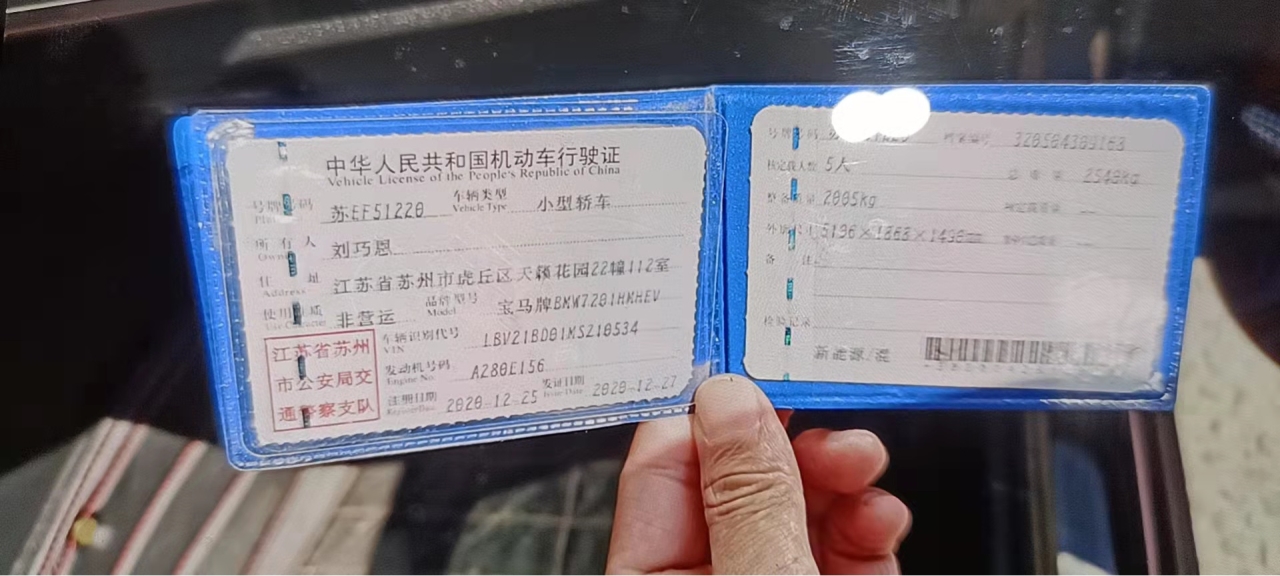 中华人民共和国机动车行驶证
Vehicle License of the People's Republic of China
号牌号码 苏EF51220 车辆类型 小型轿车
Vehicle Type
所有人 刘巧恩
住址 江苏省苏州市虎丘区天籁花园22幢112室
Address
使用性质 非营运 品牌型号 宝马牌BMW7201HMHEV
Model
江苏省苏州
市公安局交
通警察支队
车辆识别代号 LBV21BD01MS210534
VIN
发动机号码 A280E156
Engine No.
注册日期 2020-12-25 发证日期 2020-12-27
Register Date Issue Date
号牌号码 档案编号
核定载人数 5人 总质量 2540kg
整备质量 2005kg 核定载质量 --
外廓尺寸 5196×1868×1498mm
备注
检验记录
新能源/混